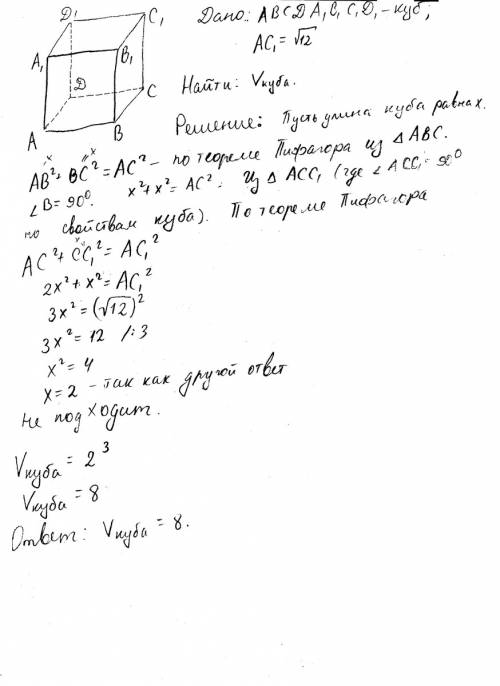 D₁ C₁
A₁ B₁
D C
A B
Дано: ABCDA₁B₁C₁D₁ - куб,
AC₁ = √12
Найти: Vкуба.
Решение: Пусть длина куба равна x.
x x
AB² + BC² = AC² - по теореме Пифагора из △ABC.
∠B = 90°. x² + x² = AC². Из △ACC₁ (где ∠ACC₁ = 90°
по свойствам куба). По теореме Пифагора
x
AC² + CC₁² = AC₁²
2x² + x² = AC₁²
3x² = (√12)²
3x² = 12 /:3
x² = 4
x = 2 - так как другой ответ
не подходит.
Vкуба = 2³
Vкуба = 8
Ответ: Vкуба = 8.